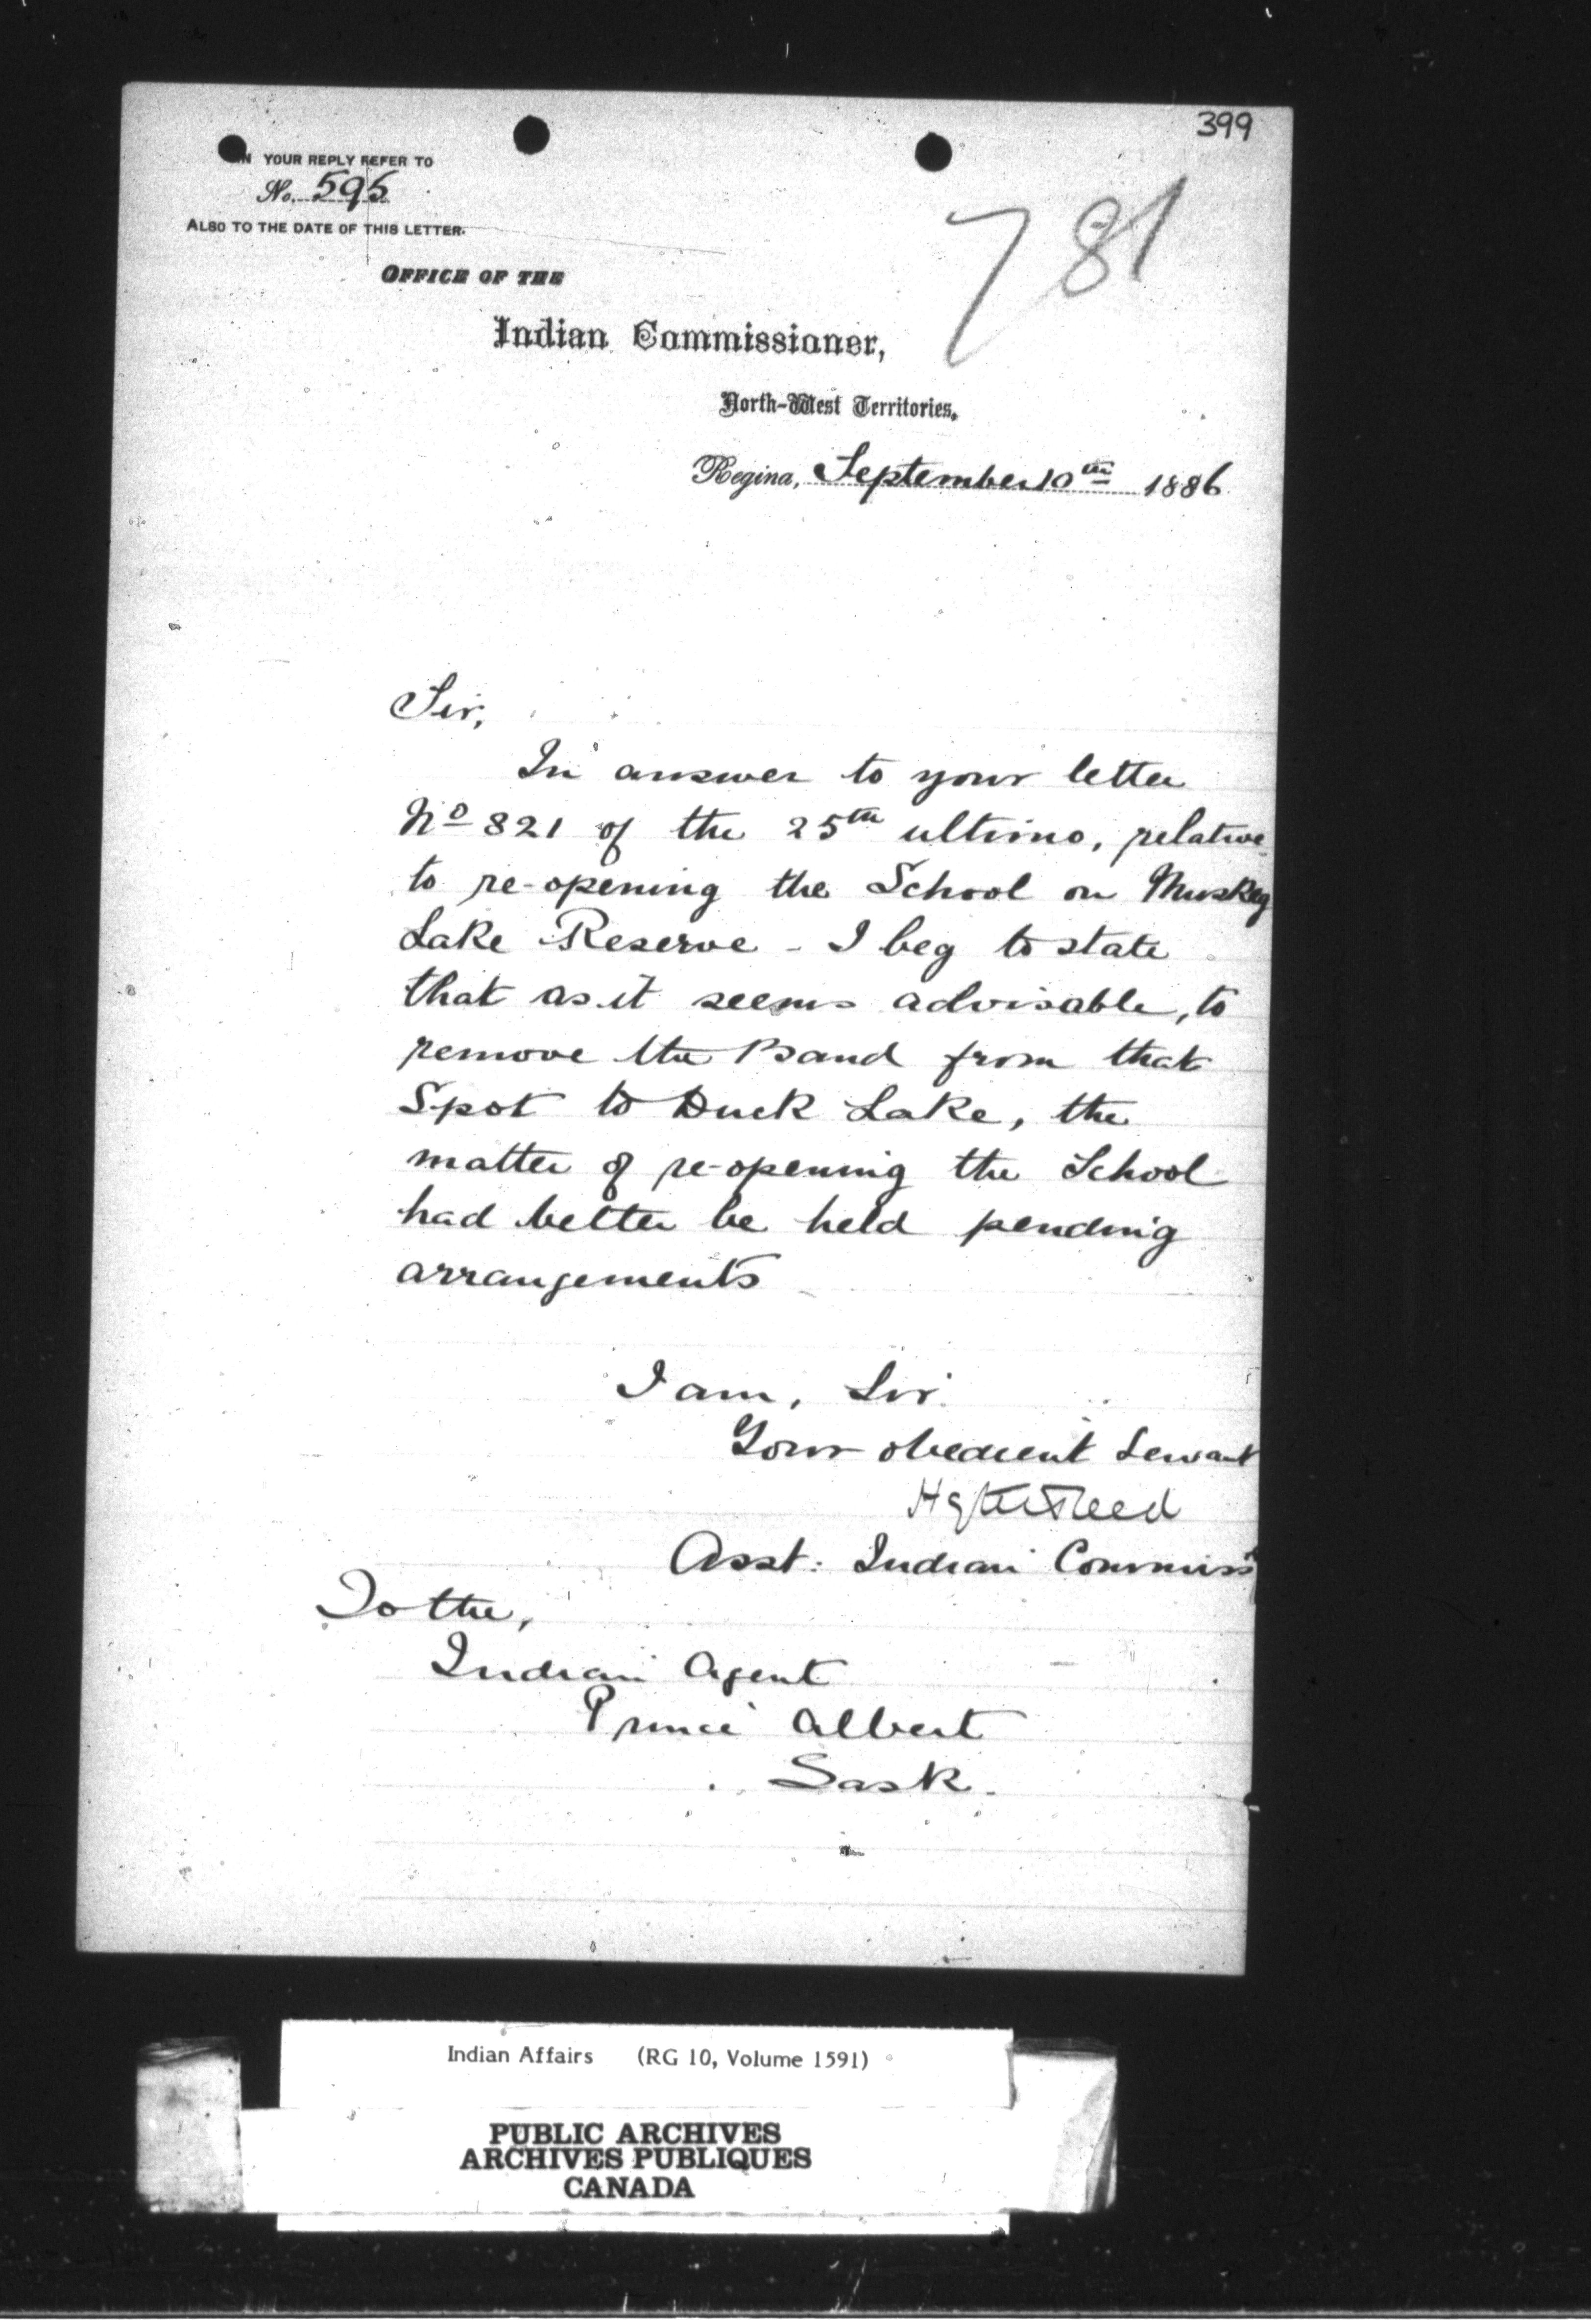 399
IN YOUR REPLY REFER TO
No. 595
ALSO TO THE DATE OF THIS LETTER.
781
OFFICE OF THE
Indian Commissioner,
North-West Territories,
Regina, September 10th 1886
Sir,
In answer to your letter
No 821 of the 25th ultimo, relative
to re-opening the School on Muskeg
Lake Reserve - I beg to state
that as it seems advisable, to
remove the Band from that
Spot to Duck Lake, the
matter of re-opening the School
had better be held pending
arrangements
I am, Sir
Your obedient Servant
Hayter Reed
Asst: Indian Commiss
To the,
Indian Agent
Prince Albert
Sask.
Indian Affairs (RG 10, Volume 1591)
PUBLIC ARCHIVES
ARCHIVES PUBLIQUES
CANADA